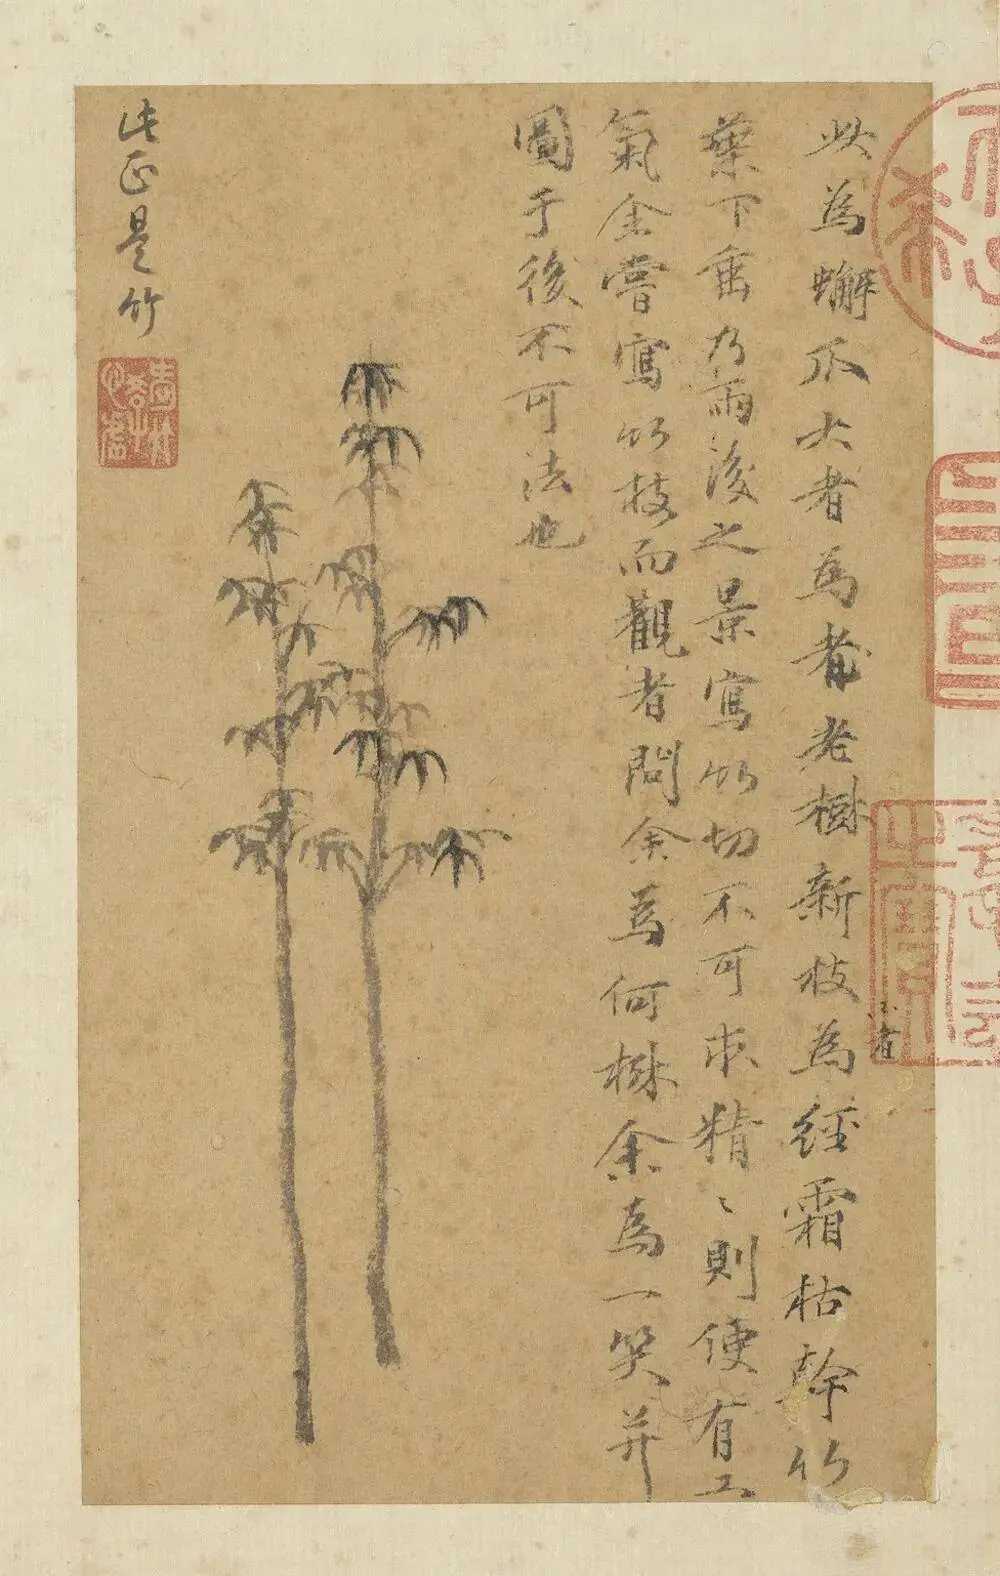 此為蠏爪大者為老樹新枝為經霜枯幹竹
小者
葉下垂乃雨後之景寫竹切不可求精〻則便有工
氣余嘗寫竹枝而觀者問余為何樹余為一笑并
圖于後不可法也
此正是竹